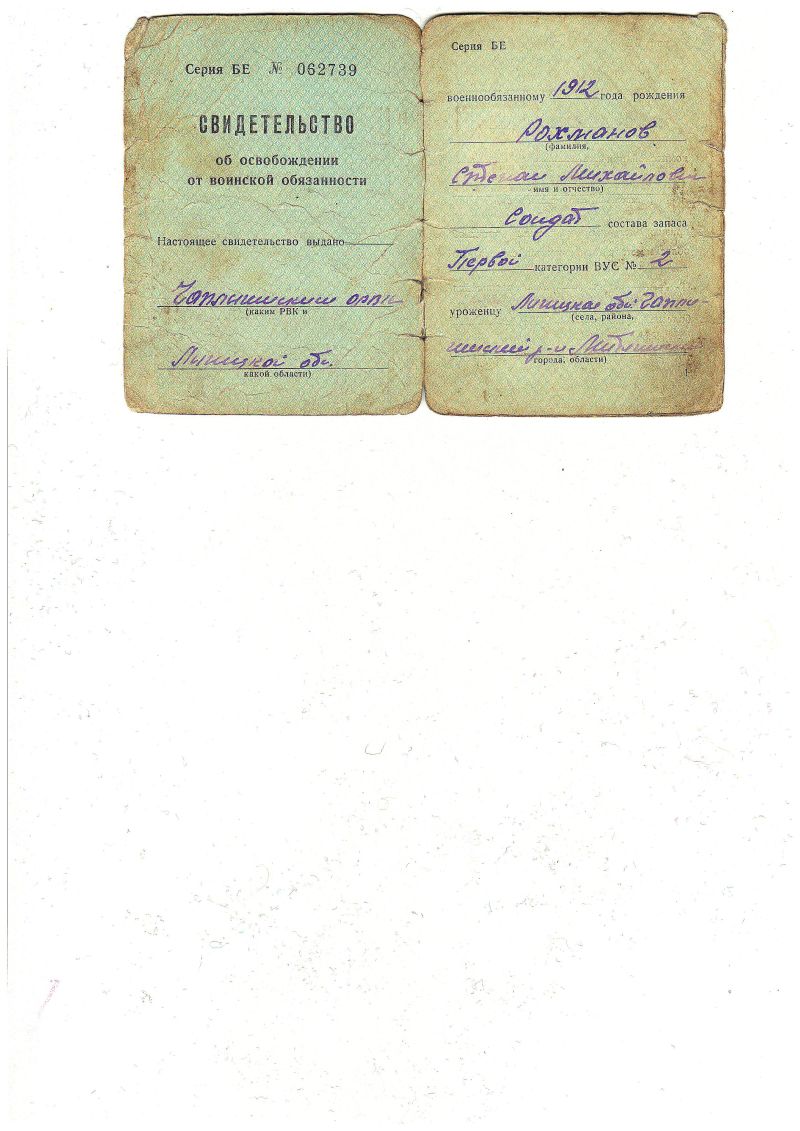 Серия БЕ № 062739
СВИДЕТЕЛЬСТВО
об освобождении
от воинской обязанности
Настоящее свидетельство выдано
Чаплыгинским орвк
(каким РВК и
Липецкой обл.
какой области)
Серия БЕ
военнообязанному 1912 года рождения
Рохманов
(фамилия,
Степан Михайлович
имя и отчество)
Солдат состава запаса
Первой категории ВУС № 2
уроженцу Липецкая обл Чаплы-
(села, района,
гинский р-н
города, области)